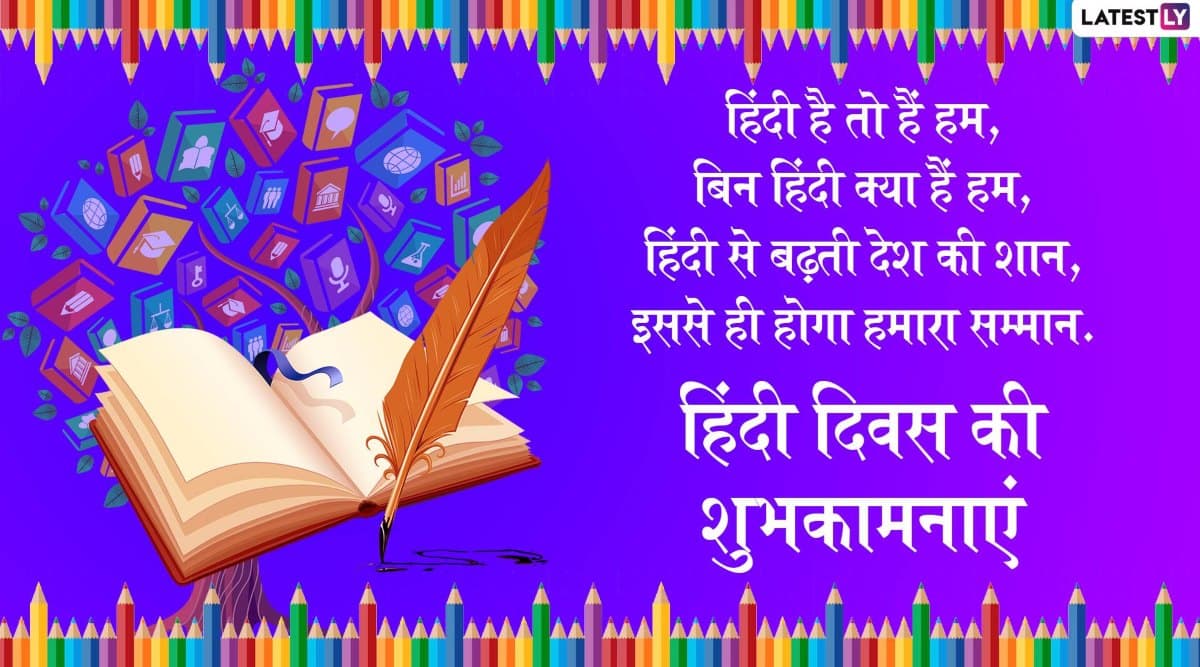 LATESTLY
हिंदी है तो हैं हम,
बिन हिंदी क्या हैं हम,
हिंदी से बढ़ती देश की शान,
इससे ही होगा हमारा सम्मान.
हिंदी दिवस की
शुभकामनाएं